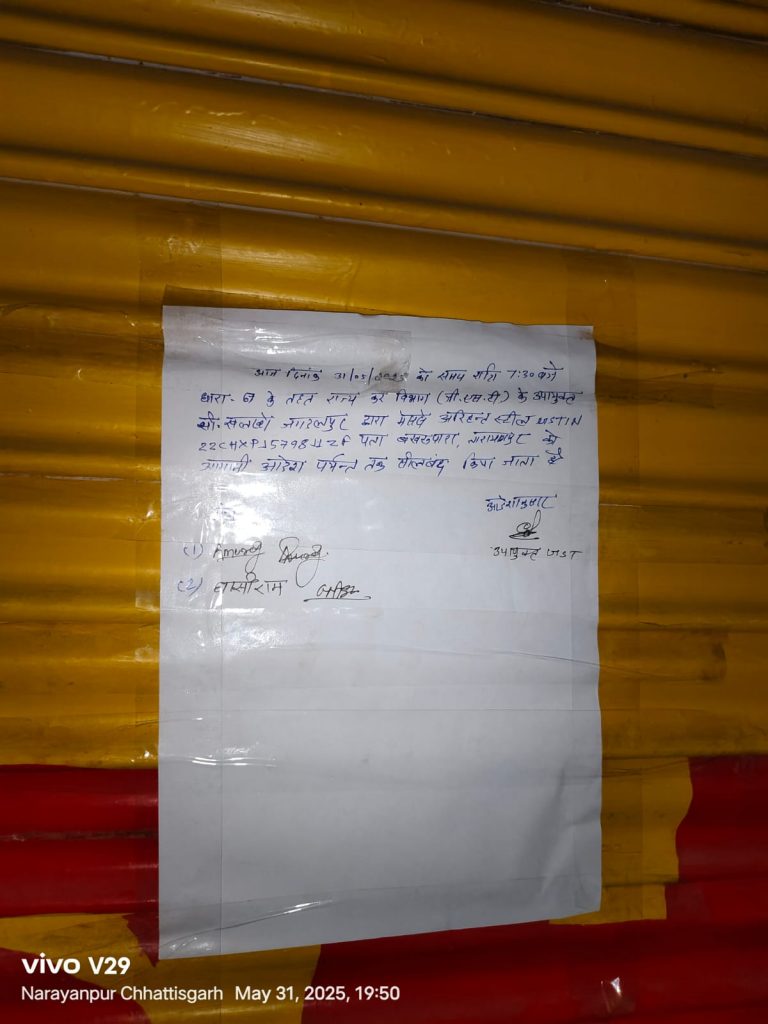 आज दिनांक 31/05/2025 को समय रात्रि 7:30 बजे
धारा- 67 के तहत राज्य कर विभाग (जी.एस.टी) के उपायुक्त
जगदलपुर द्वारा मेसर्स अरिहन्त स्टील GSTIN
पता बखरूपारा, नारायणपुर को
आगामी आदेश पर्यन्त तक सीलबंद किया जाता है
आदेशानुसार
उपायुक्त GST
(1) Anurag
(2) घासीराम
vivo V29
Narayanpur Chhattisgarh May 31, 2025, 19:50